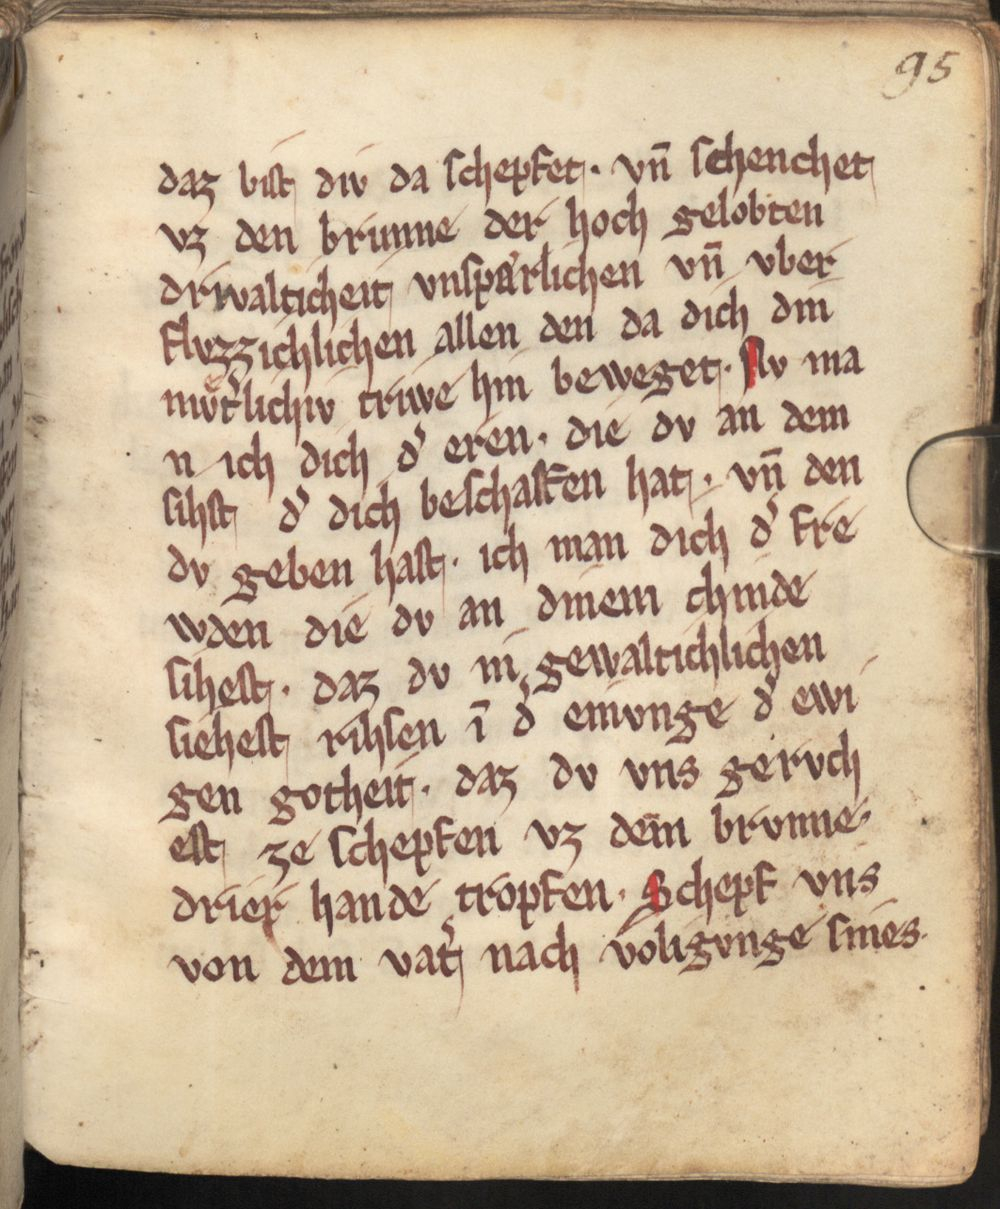 95
daz bist div da schepfet. vn̄ schenchet
vz den brunne der hoch gelobten
drivalticheit vnsparlichen vn̄ vber
flvzzichlichen allen den da dich din
mvͦt͛lichiv triwe hin beweget. Nv ma
n ich dich d͛ eren. die dv an dem
sihst d͛ dich beschaffen hat. vn̄ den
dv geben hast. ich man dich d͛ fre
wden die dv an dinem chinde
sihest. daz dv in gewaltichlichen
siehest rihsen ī d͛ einvnge d͛ ewi
gen gotheit. daz dv vns gervch
est ze schepfen vz dem brvnne.
drier hande tropfen. Schepf vns
von dem vat͛ nach voligvnge sines.